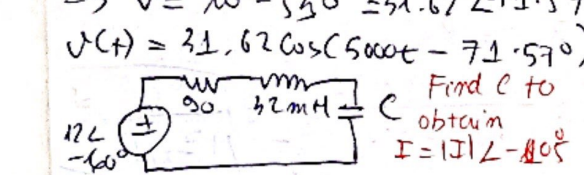 v(t) = 31.62 cos(5000t - 71.57°)
90
32mH
C
Find C to
obtain
I = |I|∠-105°
12∠
-60°
±